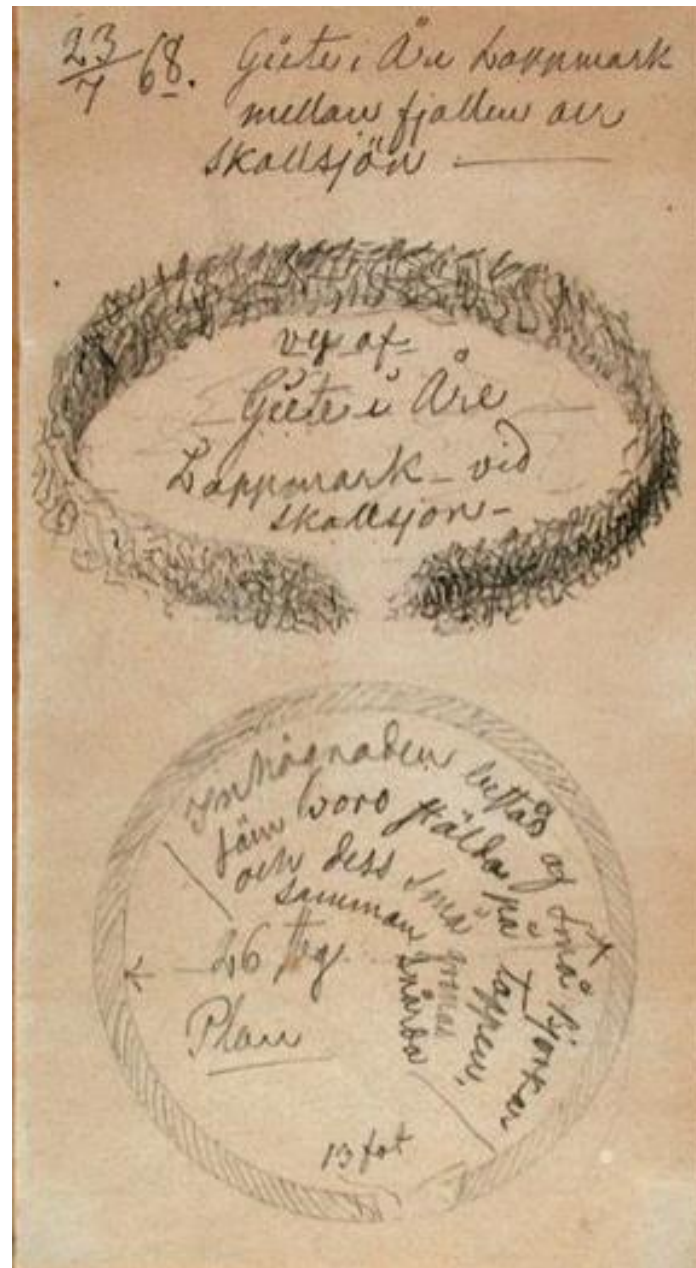 23/7 68. Giete i Åre Lappmark
mellan fjällen
Skallsjön
Giete i Åre
Lappmark - vid
Skallsjon -
Inhägnaden består af små björkar
som voro stälda på toppen,
och dess små grenar
samman snärda
26 
Plan
13 fot